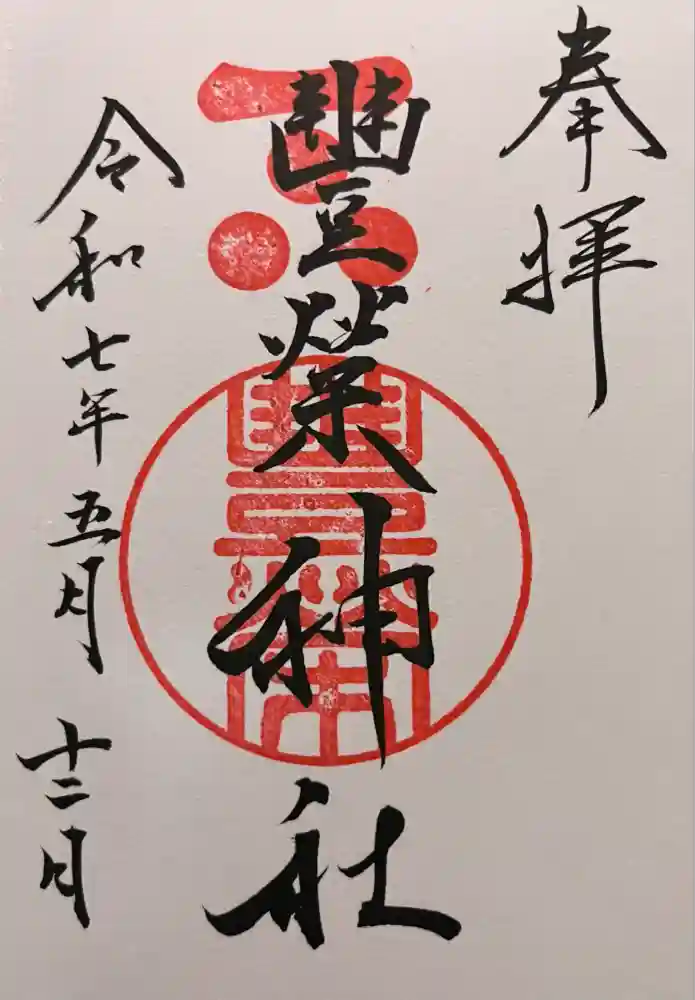 奉拝
豐榮神社
豐榮
令和七年五月十二日